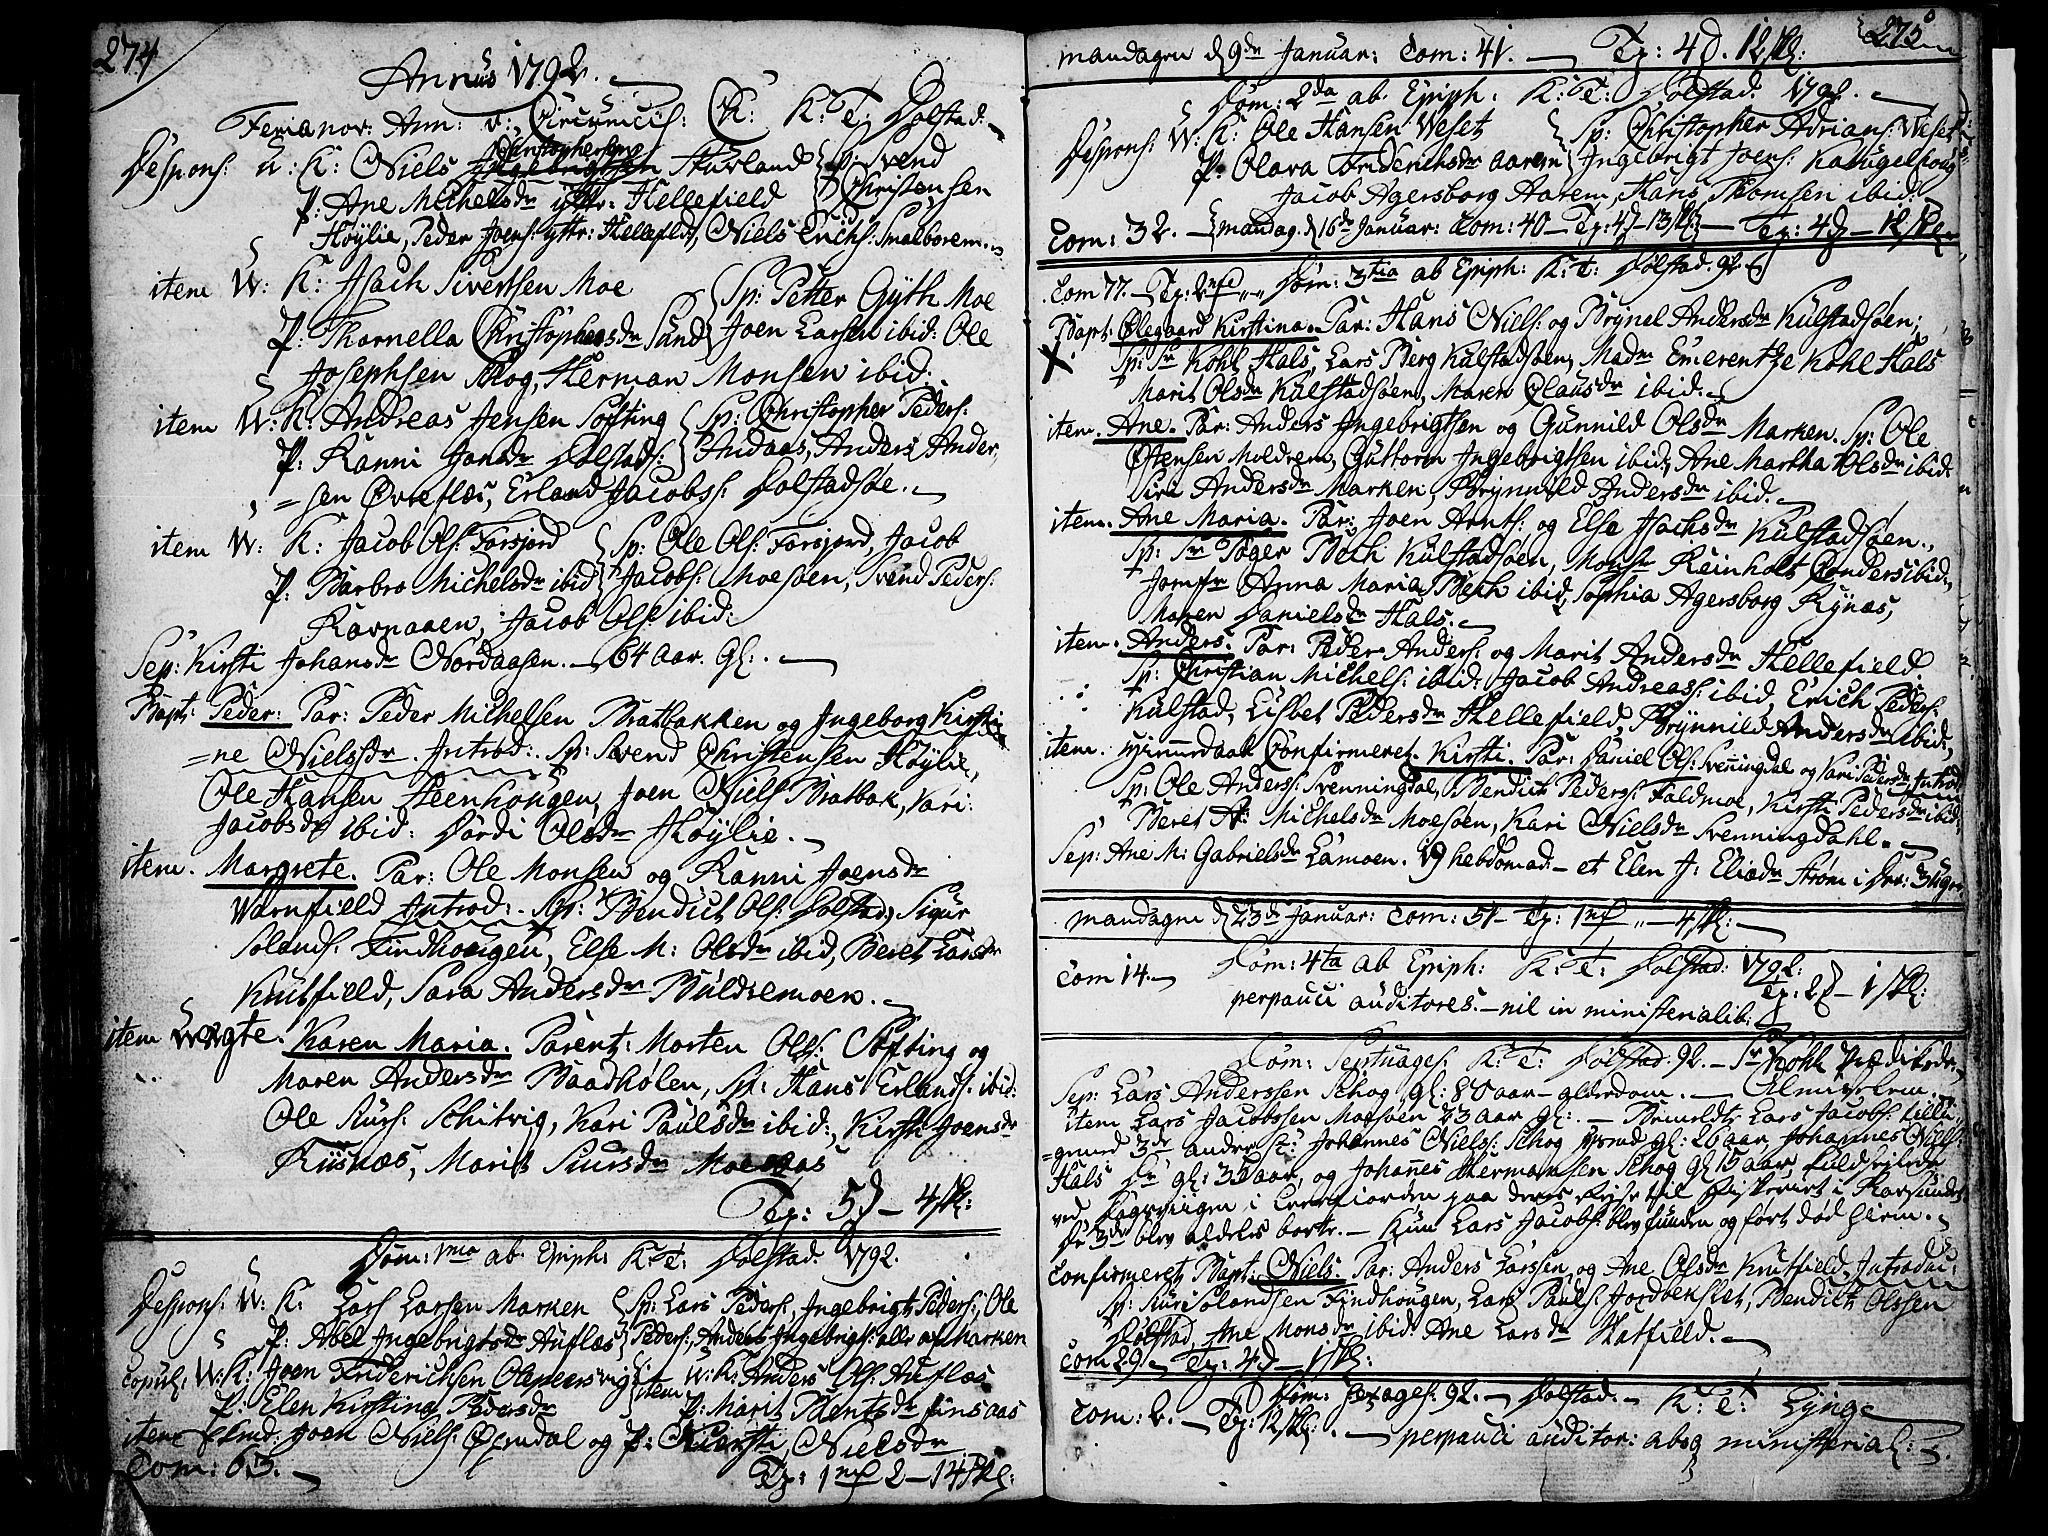 274
Annus 1792.
Feria nov: Ann: v: Circumcis: Ch: K: T: Dolstad:
Despons: u: K: Niels Christophersen Skurland Sp: Svend
P: Ane Michelsdr yttr: Hellefield Christensen
Høylie, Peder Joens: yttr: Hellefield, Niels Erichs: Smalborem.
item W: K: Isach Sivertsen Moe Sp: Petter Gyth Moe
P: Thornella Christophersdr Sund Joen Larsen ibid: Ole
Josephsen Skog, Herman Monsen ibid.
item W: K: Andreas Jensen Søfting Sp: Christopher Peders:
P: Ranni Jansdr Dolstad: Andaas, Anders Ander,
=sen Øvreflæs, Erland Jacobss: Dolstadsøe.
item W: K: Jacob Ols: Forsjord Sp: Ole Ols: Forsjord, Jacob
P: Barbro Michelsdr ibid Jacobs: Moesøen, Svend Peders:
Ravnaaen, Jacob Olss ibid:
Sep: Kirsti Johansdr Nordaasen. 64 aar. gl:.
Bapt: Peder: Par: Peder Michelsen Bratbakken og Ingeborg Kirsti
=ne Nielsdr. Introd: Sp: Svend Christensen Høylie,
Ole Hansen Steenhougen, Joen Niels Bratbak, Kari
Jacobsdr ibid: Dordi Olsdr Høylie.
item. Margrete. Par: Ole Monsen og Ranni Joensdr
Warnfield Introd: Sp: Bendict Ols: Dolstad, Sigur
Solands: Findhougen, Else M: Olsdr ibid, Beret Larsdr
Knutfield, Sara Andersdr Buldremoen.
item W ægte. Karen Maria. Parent: Morten Ols: Søfting og
Maren Andersdr Baadholen, Sp: Hans Erlands: ibid:
Ole Surs: Schitvig, Kari Paulsdr ibid:, Kirsti Joensdr
Riisnæs, Marit Siursdr Moenæs
Tp: 5 – 4 sk:
Dom: 1ma ab. Epiph: K: T: Dolstad. 1792.
Despons: W: K: Lars Larsen Marken Sp: Lars Peders:, Ingebrigt Peders:, Ole
P: Abel Ingebrigtsdr Aufles Peders:, Anders Ingebrigts: alle af Marken
copul: W: K: Joen Friderichsen Olemeersvig item W: K: Anders Ols: Aufles
P: Elen Kirstina Pedersdr P: Marit Bentsdr Finsaas
item Joen Niels: Øxendal og P: Kirsti Nielsdr
Com: 63. Tp: 1 2 – 14 sk:
275
Mandagen d 9de Januar: Com: 41. Tp: 4. 12 sk:
Dom: 2da ab. Epiph: K: T: Dolstad. 1792.
Despons: W: K: Ole Hansen Weset Sp: Christopher Adrians: Weset
P: Olava Friderichsdr Aarem Ingebrigt Joens:
Jacob Agersborg Aarem, Hans Thomsen ibid:
Com: 32. Mandag. d 16de Januar: Com: 40 – Tp: 4 – 13 sk: Tp: 4 – 12 sk:
Com 77. Tp: 2 Dom: 3tia ab Epiph: K: T: Dolstad. 92
Bapt: Olegaard Kirstina. Par: Hans Niels: og Brynel Andersdr Kulstadsøen,
Sp: Sr Kohl Hals, Lars Berg Kulstadsøen, Madm Emerentze Kohl Hals
Marit Olsdr Kulstadsøen, Maren Olausdr ibid.
item. Ane. Par: Anders Ingebrigtsen og Gunnild Olsdr Marken. Sp: Ole
Ostensen Moldrem, Guttorm Ingebrigtsen ibid:, Ane Martha Olsdr ibid:
Siri Andersdr Marken, Brynnild Andersdr ibid.
item. Ane Maria. Par: Joen Arnts: og Else Isachsdr Kulstadsøen.,
Sp: Sr Boger Bech Kulstadsøen, Monsr Reinholt Conders ibid:,
Jomfr Anna Maria Bech ibid, Sophia Agersborg Rynæs,
Maren Danielsdr Hals.
item. Anders. Par: Peder Anders: og Marit Andersdr Hellefield.
Sp: Christian Michels: ibid: Jacob Andreass: ibid, Erich Peders:
Kulstad, Lisbet Pedersdr Hellefield, Brynnild Andersdr ibid:,
item. Hiemmedaab Confirmeret. Kirsti. Par: Daniel Ols: Svenningdal og Kari Pedersdr Introd
Sp: Ole Anderss: Svenningdal, Bendict Peders: Faldmoe, Kirsti Pedersdr ibid:
Beret Michelsdr Moesøen, Kari Nielsdr Svenningdahl.
Sep: Ane M: Gabrielsdr Lamoen. 19 hebdomad: – et Elen J: Eliædr Strøm i Drv: 3 uger
Mandagen d 23de Januar: Com: 51 – Tp: 1 – 4 sk:
Com 14. Dom: 4ta ab Epiph: K: T: Dolstad: 1792:
perpauci auditores. – nil in ministerialib: Tp: 2 – 1 sk:
Dom: Septuages: K: T: Dolstad. 92. – Sr Kohl Prædikede,
Sep: Lars Anderssen Schog, gl: 80 aar – alderdom.
item Lars Jacobssen Moesøen 23 aar gl: – Lars Jacobs: tilli
=gemed 3de andre Johannes Niels: Schog gl: 26 aar, Johannes Niels:
Hals gl: 35 aar, og Johanes Hermansen Schog gl 15 aar, kuldseilede
ved i paa deres Reise til Fiskeriet i
De 3de blev aldeles borte. – Kun Lars Jacobs: blev funden og ført død hiem.
Confirmeret Bapt: Niels. Par: Anders Larssen, og Ane Olsdr Knutfield, Introduc:
Sp: Siur Solandsen Findhougen, Lars Pauls: Jordbekslet, Bendict Olssen
Dolstad, Ane Monsdr ibid: Ane Larsdr Hatfield.
Com 29. Tp: 4 – 1 sk:
Dom: Sexages: 92. – Dolstad. – K: T: Lynge
Com: 2. – Tp: 12 sk:. perpauci auditor: absq ministerial: